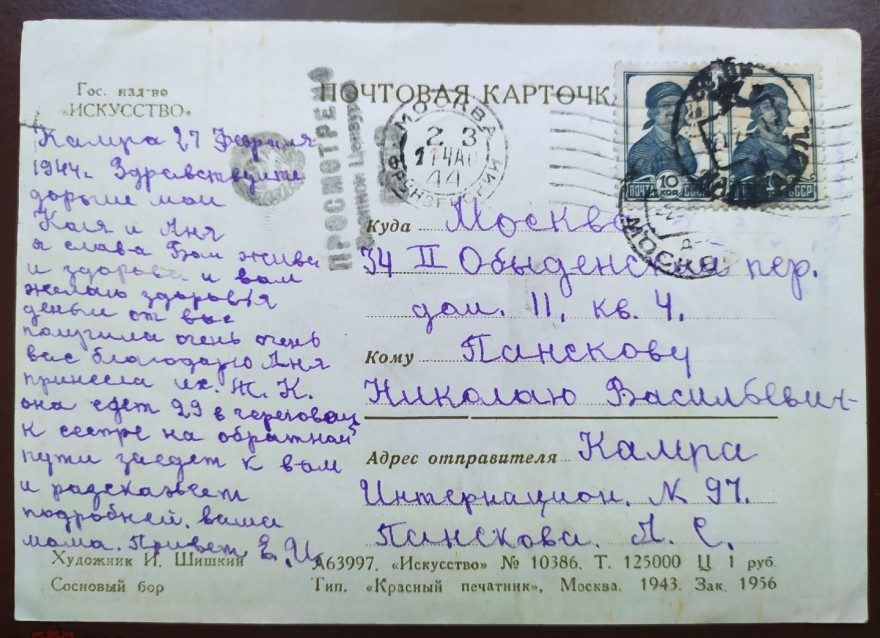 Гос. изд-во
«ИСКУССТВО»
ПОЧТОВАЯ КАРТОЧК
ПРОСМОТРЕНО
Военной Цензурой
МОСКВА
2 3
44
ПОЧТА 10 КОП
СССР
МОСКВА
27
1944г. Здравствуйте
дорогие мои
Коля и Аня
я слава Богу жива
и здорова и вам
желаю здоровья
деньги от вас
получила очень очень
вас благодарю Аня
принесла их. Т. К.
она едет 29 в
к сестре на обратной
пути заедет к вам
и разскажет
подробней. ваша
мама. Привет Е. И.
Куда Москва
34 II Обыденский пер.
дом. 11, кв. 4.
Кому Панскову
Николаю Васильевич
Адрес отправителя
Интернацион. № 97.
Панскова. А. С.
Художник И. Шишкин
Сосновый бор
А63997. «Искусство» № 10386. Т. 125000 Ц. 1 руб.
Тип. «Красный печатник», Москва. 1943. Зак. 1956